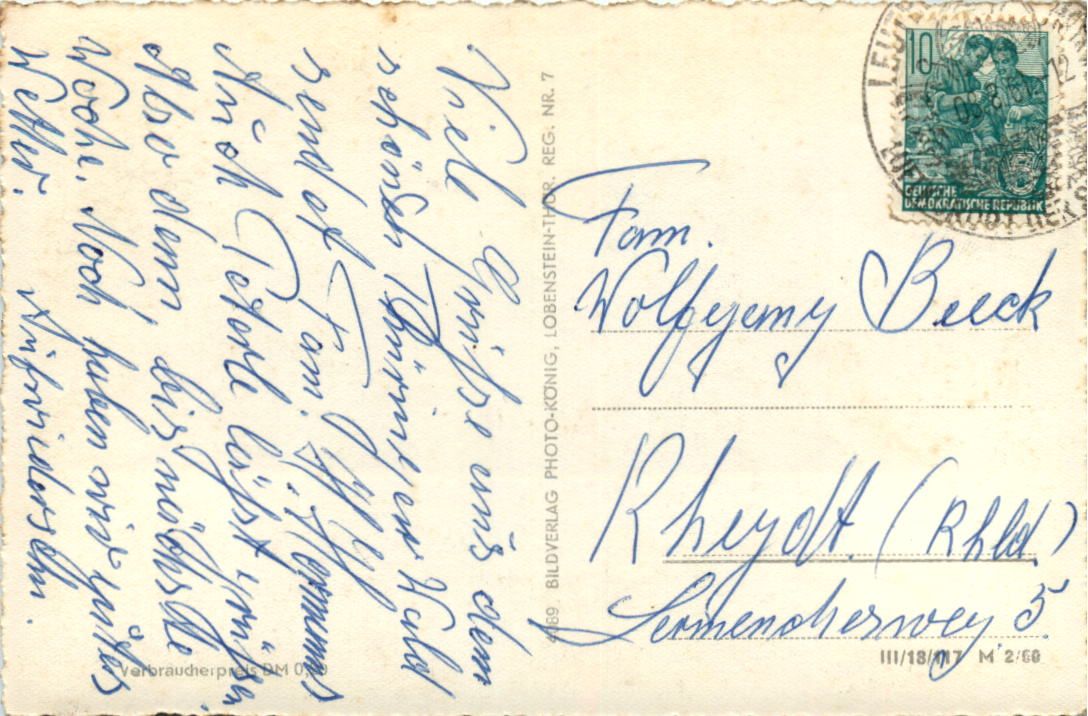 Viele Grüße aus dem
schönen Thüringer Wald
sendet Fam. Hermann
Auch Peterle läßt grüßen
Also dann, bis nächste
Woche. Noch haben wir gutes
Wetter. Aufwiedersehn.
4089 BILDVERLAG PHOTO-KÖNIG, LOBENSTEIN-THÜR. REG. NR. 7
10
DEUTSCHE
DEMOKRATISCHE REPUBLIK
Fam.
Wolfgang Beeck
Rheydt. (Rhld)
5.
III/18/117 M 2/60
Verbraucherpreis DM 0,